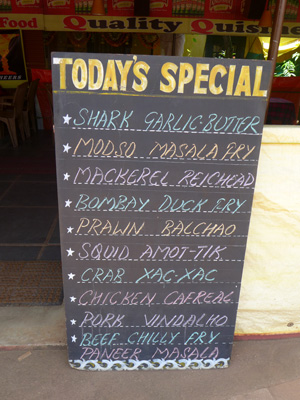 Food
Quality Quisine
TODAY'S SPECIAL
SHARK GARLIC-BUTTER
MODSO MASALA FRY
MACKEREL REICHEAD
BOMBAY DUCK FRY
PRAWN BALCHAO
SQUID AMOT-TIK
CRAB XAC-XAC
CHICKEN CAFREAL
PORK VINDALHO
BEEF CHILLY FRY
PANEER MASALA